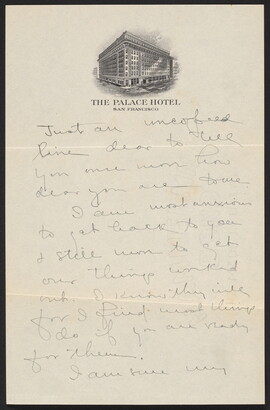 THE PALACE HOTEL
SAN FRANCISCO
Just an
line dear to tell
you once more how
dear you are to me
I am most anxious
to get back to you
& still more to get
our things worked
out. I know they will
for I find most things
do if you are ready
for them.
I am sure my